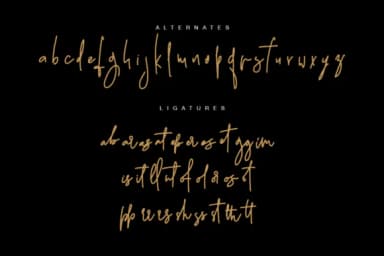 ALTERNATES
abcdefghijklmnopqrstuvwxyz
LIGATURES
ab ar as at ep er es et gg im
is it ll nt of ol or os ot
pp rr rs sh ss st th tt